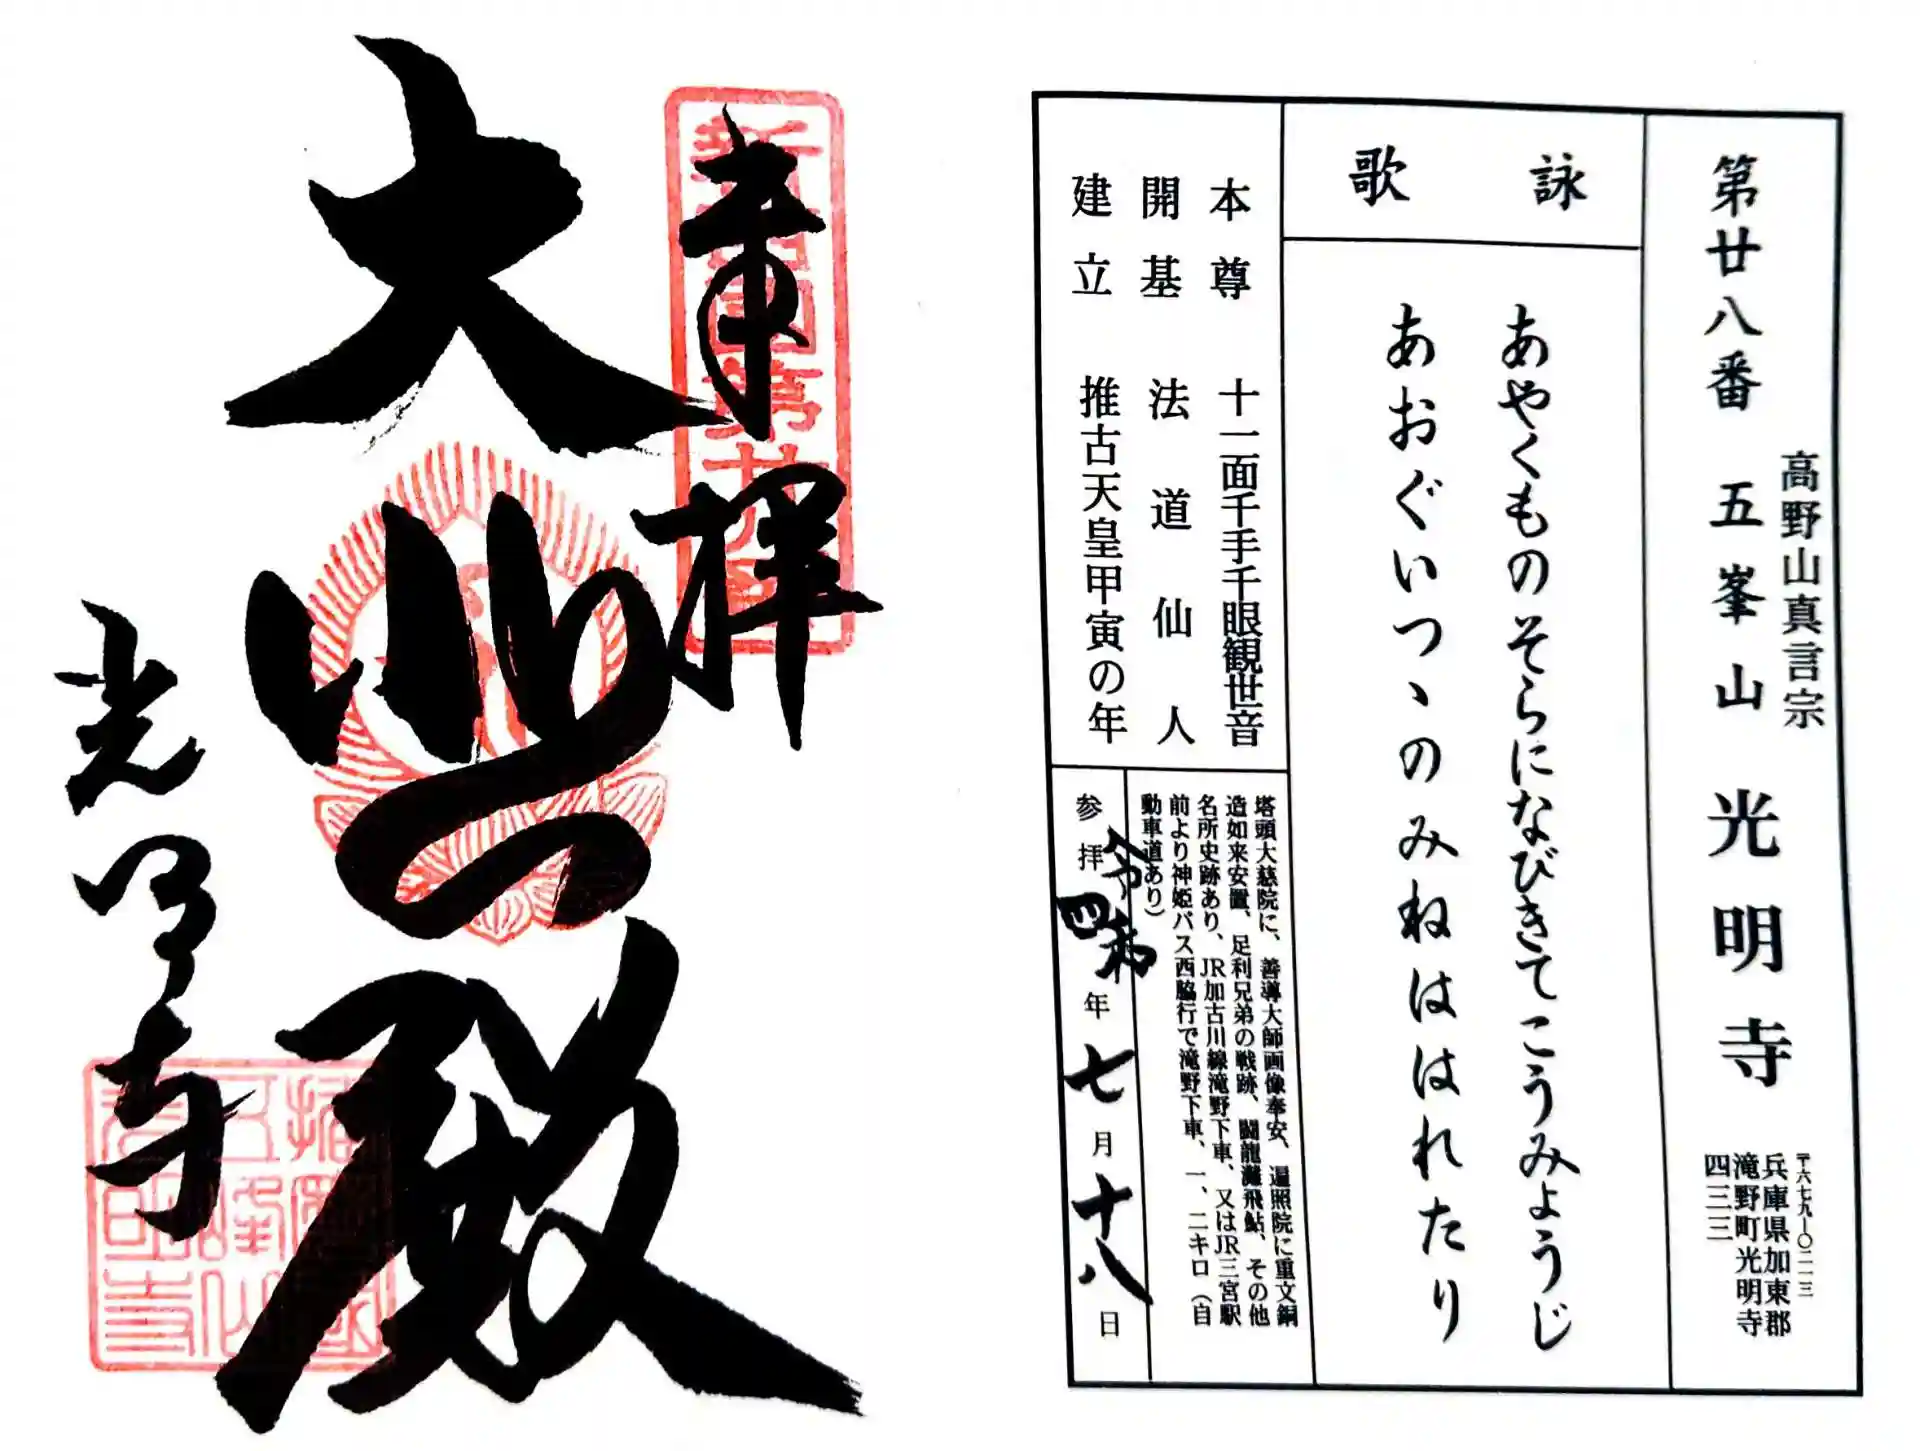 第廿八番 五峯山 光明寺
高野山真言宗
〒六七九ー〇二一三
兵庫県加東郡
滝野町光明寺
四三三
詠歌
あやくものそらになびきてこうみょうじ
あおぐいつゝのみねははれたり
本尊 十一面千手千眼観世音
開基 法道仙人
建立 推古天皇甲寅の年
塔頭大慈院に、善導大師画像奉安、遍照院に重文銅
造如来安置、足利兄弟の戦跡、闘龍灘飛鮎、その他
名所史跡あり、JR加古川線滝野下車、又はJR三宮駅
前より神姫バス西脇行で滝野下車、一、二キロ（自
動車道あり）
参拝 令和四年七月十八日
奉拝
大悲殿
光明寺
五峰山
光明寺